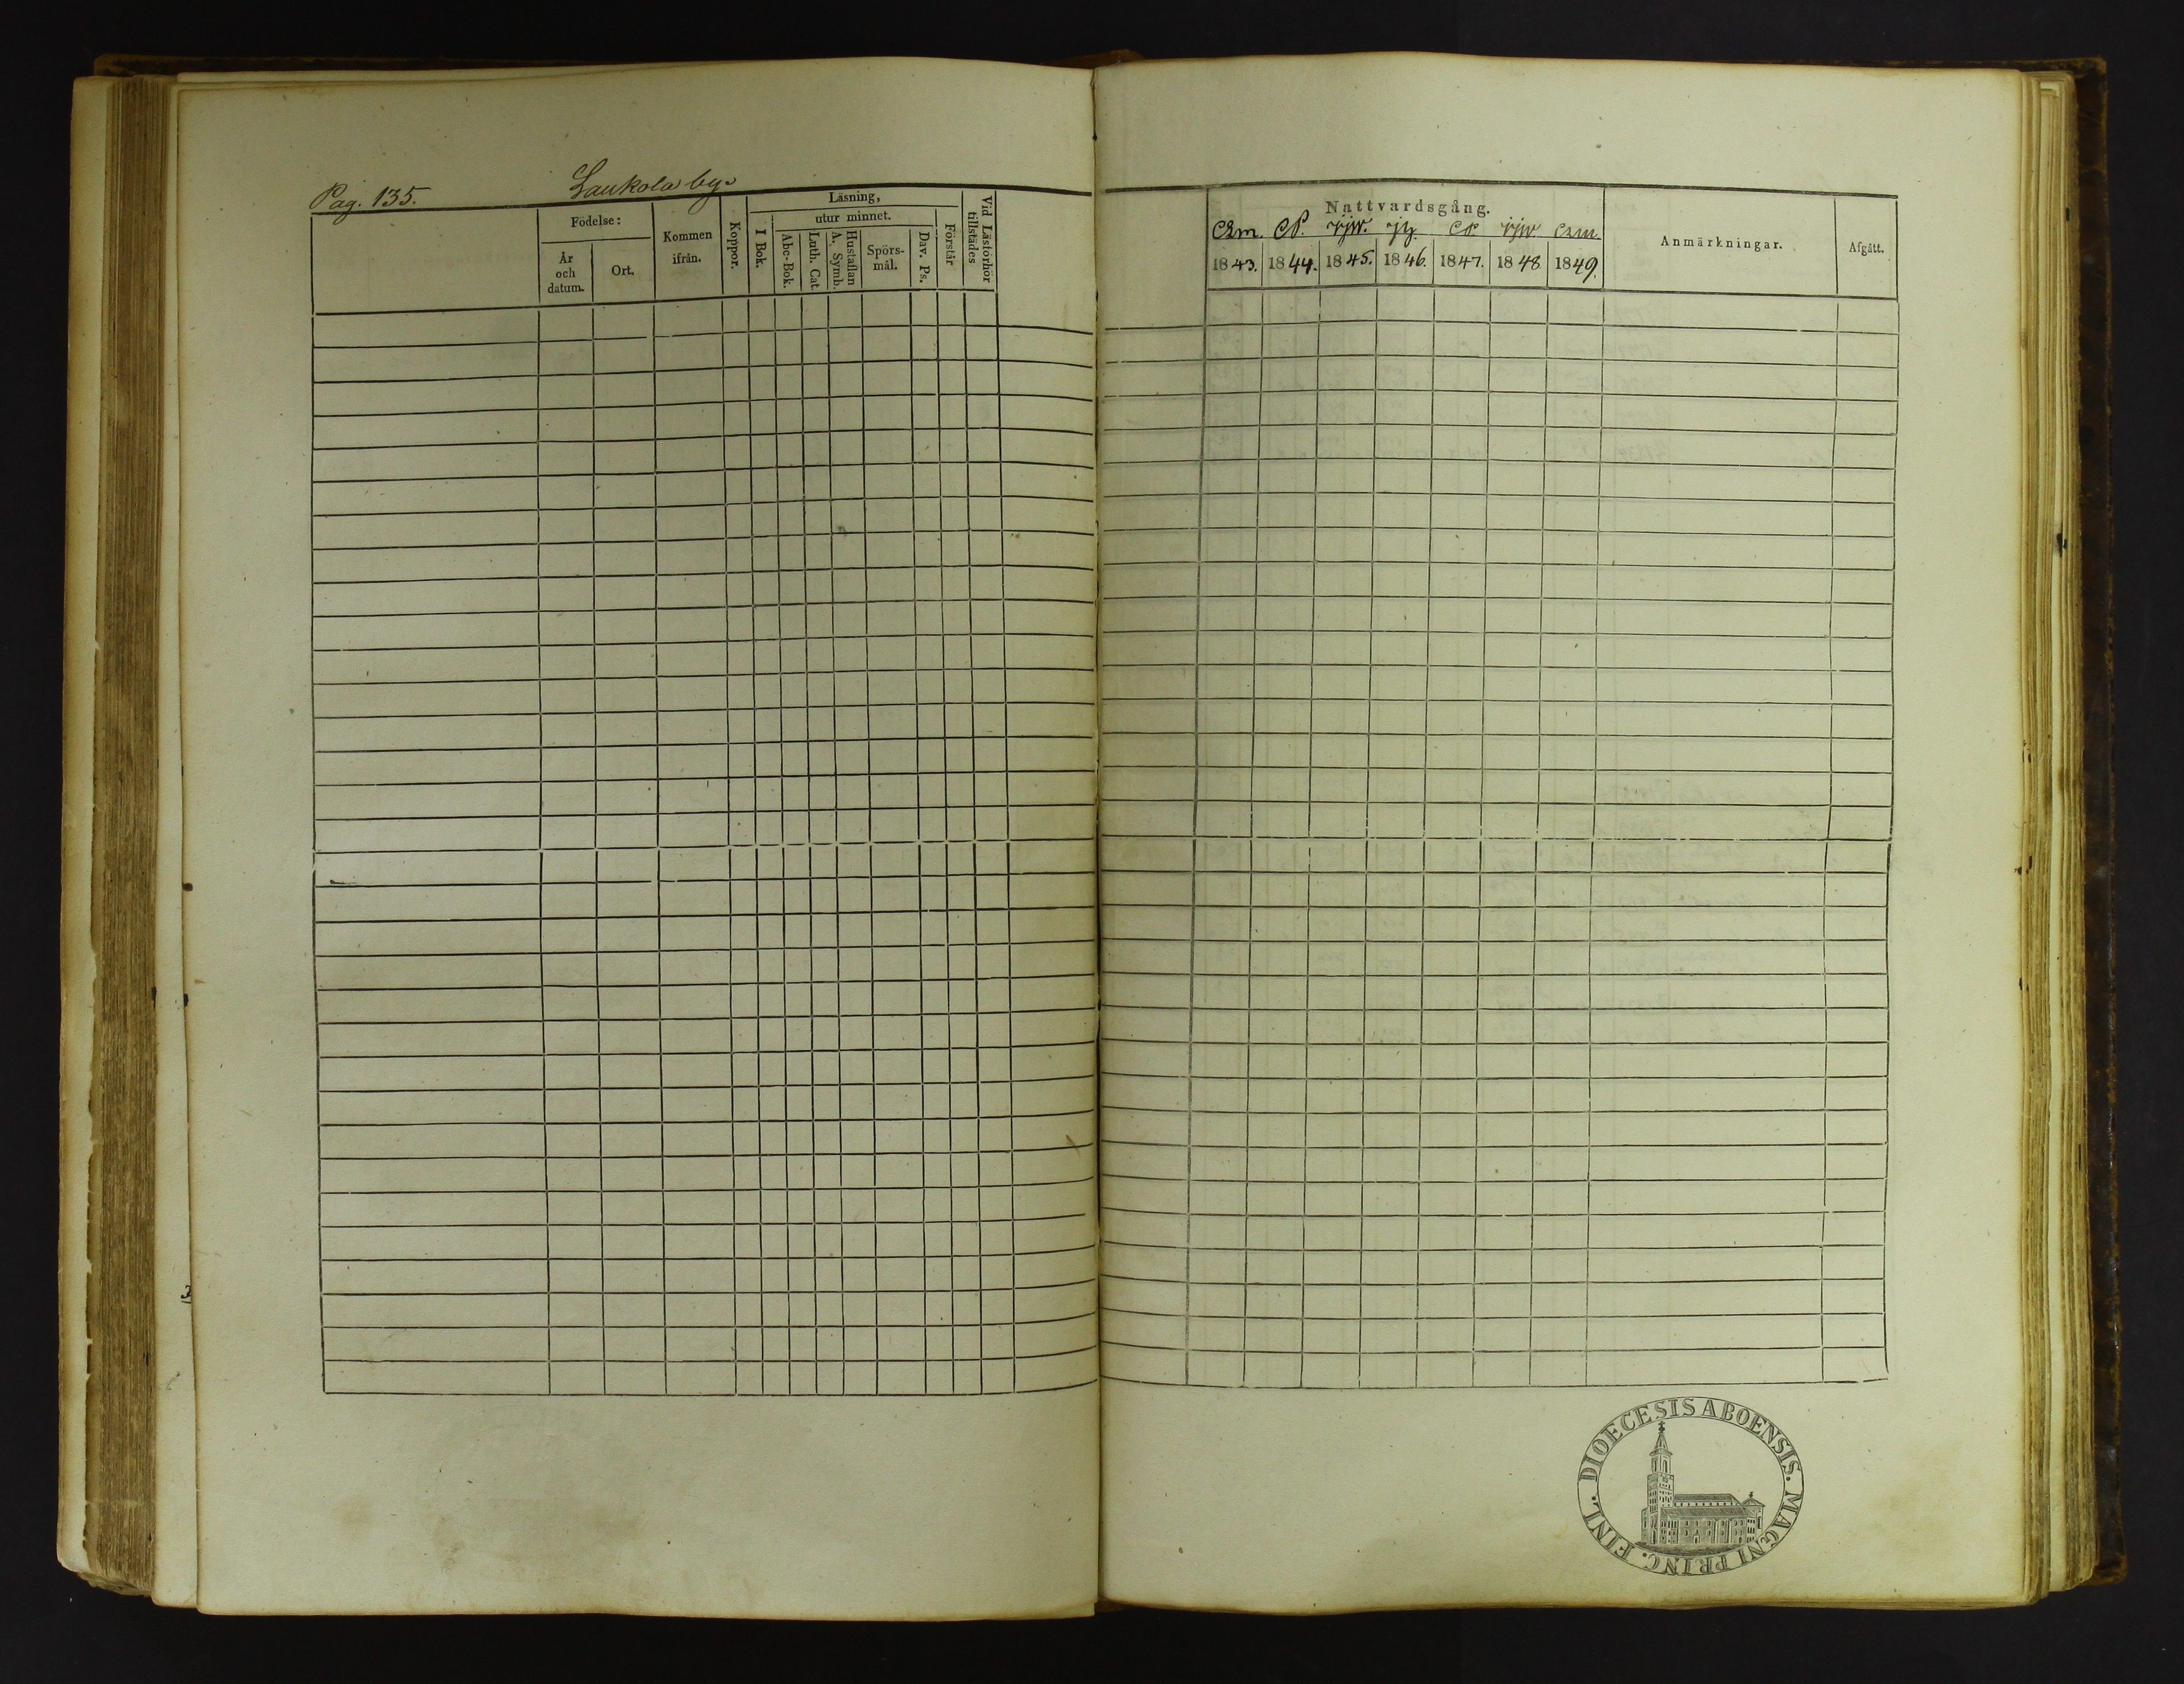 Pag. 135. Laukola by.
Födelse:
År och datum.
Ort.
Kommen ifrån.
Koppor.
Läsning,
I Bok.
utur minnet.
Abc-Bok.
Luth. Cat.
Hustaflan A. Symb.
Spörsmål.
Dav. Ps.
Förstår
Vid Läsförhör tillstädes
Nattvardsgång.
1843. 1844. 1845. 1846. 1847. 1848 1849.
Anmärkningar.
Afgått.
DIOECESIS ABOENSIS. MAGNI PRINC. FINL.